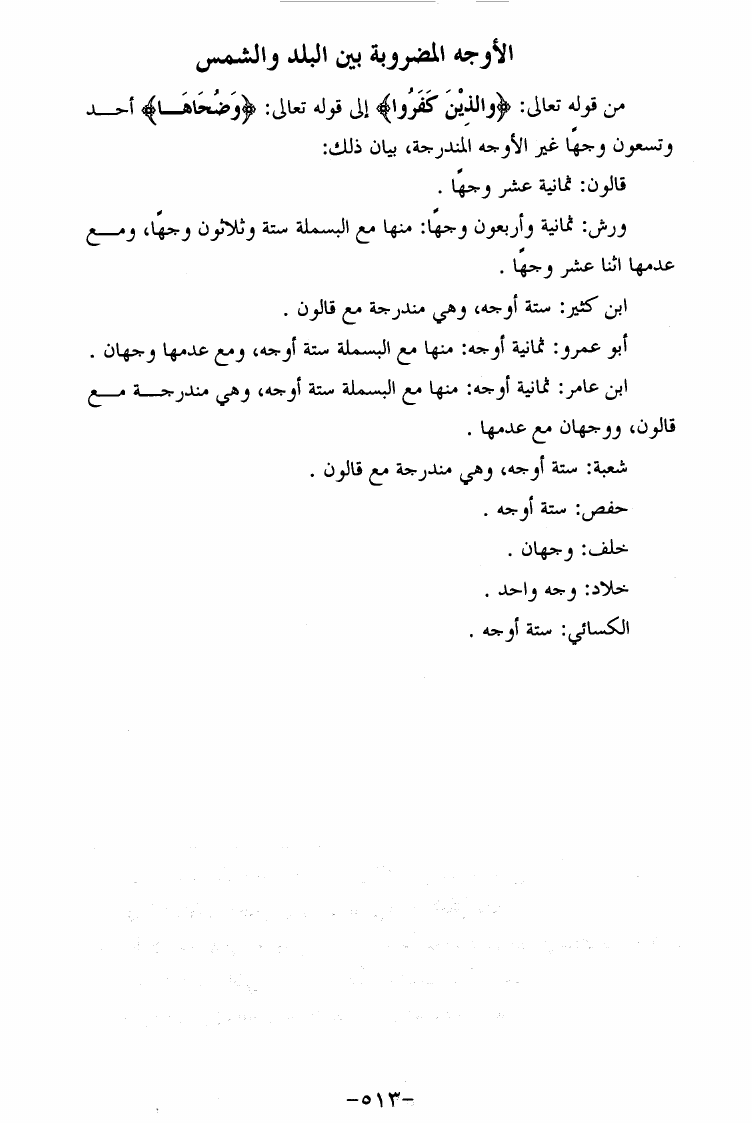 الأوجه المضروبة بين البلد والشمس
من قوله تعالى: ﴿والذِيْنَ كَفَرُوا﴾ إلى قوله تعالى: ﴿وَضُحَاهَـــا﴾ أحـــد
وتسعون وجهًا غير الأوجه المندرجة، بيان ذلك:
قالون: ثمانية عشر وجهًا .
ورش: ثمانية وأربعون وجهًا: منها مع البسملة ستة وثلاثون وجهًا، ومـــع
عدمها اثنا عشر وجهًا .
ابن كثير: ستة أوجه، وهي مندرجة مع قالون .
أبو عمرو: ثمانية أوجه: منها مع البسملة ستة أوجه، ومع عدمها وجهان .
ابن عامر: ثمانية أوجه: منها مع البسملة ستة أوجه، وهي مندرجـــة مـــع
قالون، ووجهان مع عدمها .
شعبة: ستة أوجه، وهي مندرجة مع قالون .
حفص: ستة أوجه .
خلف: وجهان .
خلاد: وجه واحد .
الكسائي: ستة أوجه .
-٥١٣-